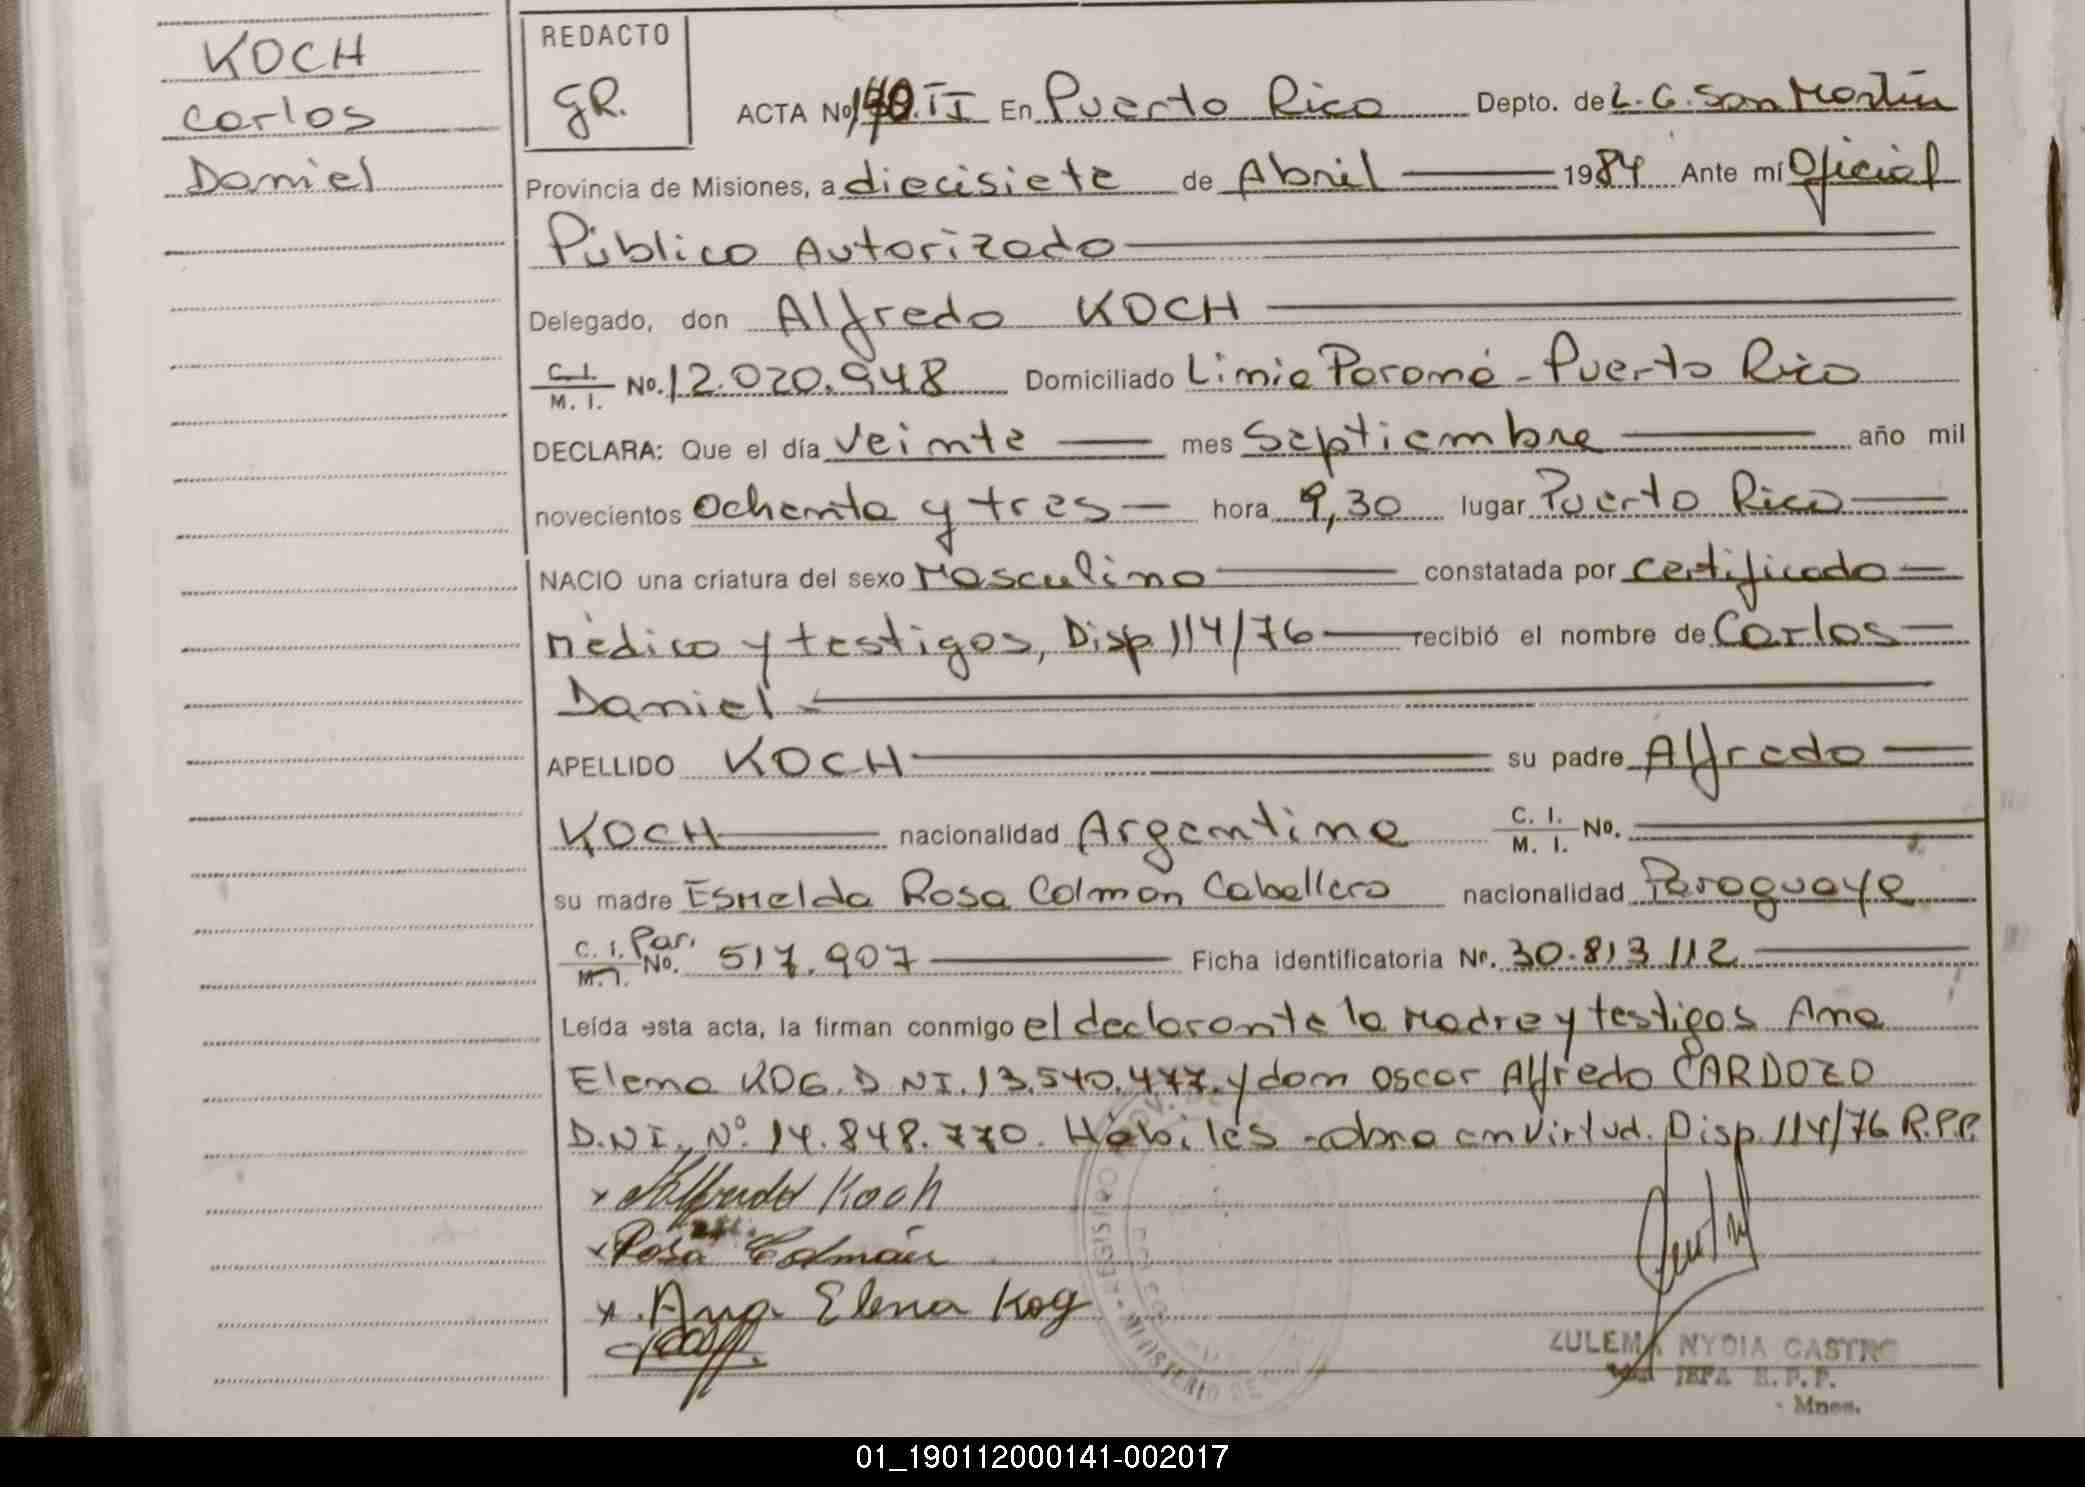 KOCH
Carlos
Daniel
REDACTO
GR.
ACTA No 170.II En Puerto Rico Depto. de L. G. San Martín
Provincia de Misiones, a diecisiete de Abril 1984 Ante mí Oficial
Público Autorizado
Delegado, don Alfredo KOCH
C. I. / M. I. No. 12.020.948 Domiciliado Linia Paraná - Puerto Rico
DECLARA: Que el día veinte mes Septiembre año mil
novecientos ochenta y tres hora 9,30 lugar Puerto Rico
NACIO una criatura del sexo Masculino constatada por certificado
médico y testigos, Disp 114/76 recibió el nombre de Carlos
Daniel
APELLIDO KOCH su padre Alfredo
KOCH nacionalidad Argentina C. I. / M. I. No.
su madre Esmelda Rosa Colman Caballero nacionalidad Paraguaya
C. I. Par. / M. I. No. 517.907 Ficha identificatoria No. 30.813.112
Leída esta acta, la firman conmigo el declarante la madre y testigos Ana
Elena KOG. D.NI. 13.540.477. y don Oscar Alfredo CARDOZO
D.NI. Nº. 14.848.770. Hábiles - obra en virtud. Disp. 114/76 R.P.P.
x Alfredo Koch
x Rosa Colmán
x. Ana Elena Kog
ZULEMA NYDIA CASTRO
JEFA R.P.P.
- Mnes.
REGISTRO PROV. DE
MINISTERIO DE
01_190112000141-002017